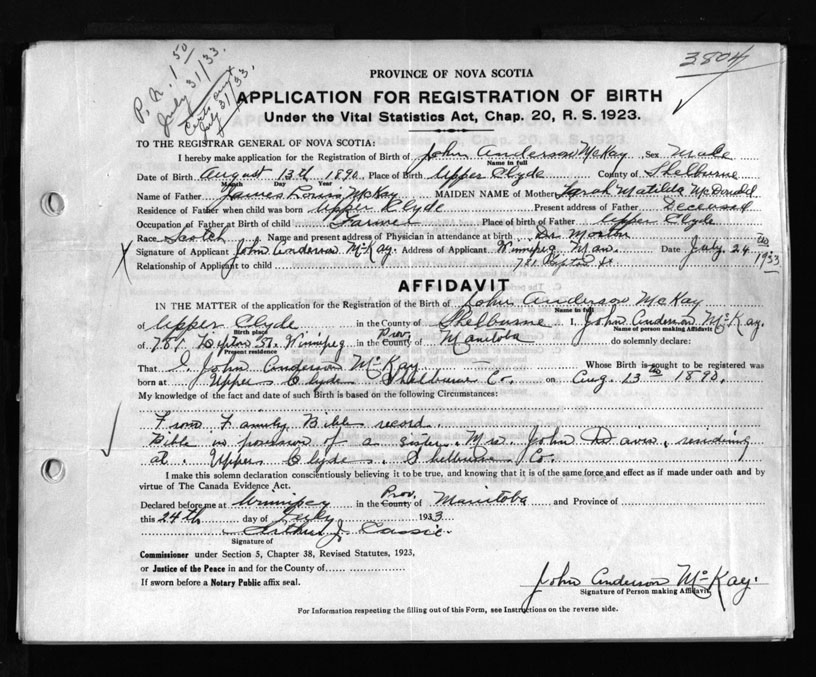 P.N. 1.50
July 31/33.
July 31/33.
3804
PROVINCE OF NOVA SCOTIA
APPLICATION FOR REGISTRATION OF BIRTH
Under the Vital Statistics Act, Chap. 20, R. S. 1923.
TO THE REGISTRAR GENERAL OF NOVA SCOTIA:
I hereby make application for the Registration of Birth of John Anderson McKay Sex Male
Name in full
Date of Birth August 13th 1890 Place of Birth Upper Clyde County of Shelburne
Month Day Year
Name of Father James McKay MAIDEN NAME of Mother Sarah Matilda McDonald
Residence of Father when child was born Upper Clyde Present address of Father Deceased
Occupation of Father at Birth of child Farmer Place of Birth of father Upper Clyde
Race Scotch Name and present address of Physician in attendance at birth Dr Morton
Signature of Applicant John Anderson McKay. Address of Applicant Winnipeg Man. Date July 24th 1933
Relationship of Applicant to child 781 St.
AFFIDAVIT
IN THE MATTER of the application for the Registration of the Birth of John Anderson McKay
Name in full
of Upper Clyde in the County of Shelburne I, John Anderson McKay.
Birth place Name of person making Affidavit
of 781 St. Winnipeg in the County Prov. of Manitoba do solemnly declare:
Present residence
That I, John Anderson McKay Whose Birth is sought to be registered was
born at Upper Clyde Shelburne Co. on Aug. 13th 1890.
My knowledge of the fact and date of such Birth is based on the following Circumstances:
From Family Bible record.
Bible in possession of a sister, Mrs. John Davis, residing
at Upper Clyde, Shelburne Co.
I make this solemn declaration conscientiously believing it to be true, and knowing that it is of the same force and effect as if made under oath and by
virtue of The Canada Evidence Act.
Declared before me at Winnipeg in the County Prov. of Manitoba and Province of
this 24th day of July 1933
Arthur J. Cassie.
Signature of
Commissioner under Section 5, Chapter 38, Revised Statutes, 1923,
or Justice of the Peace in and for the County of
If sworn before a Notary Public affix seal.
John Anderson McKay.
Signature of Person making Affidavit
For Information respecting the filling out of this Form, see Instructions on the reverse side.